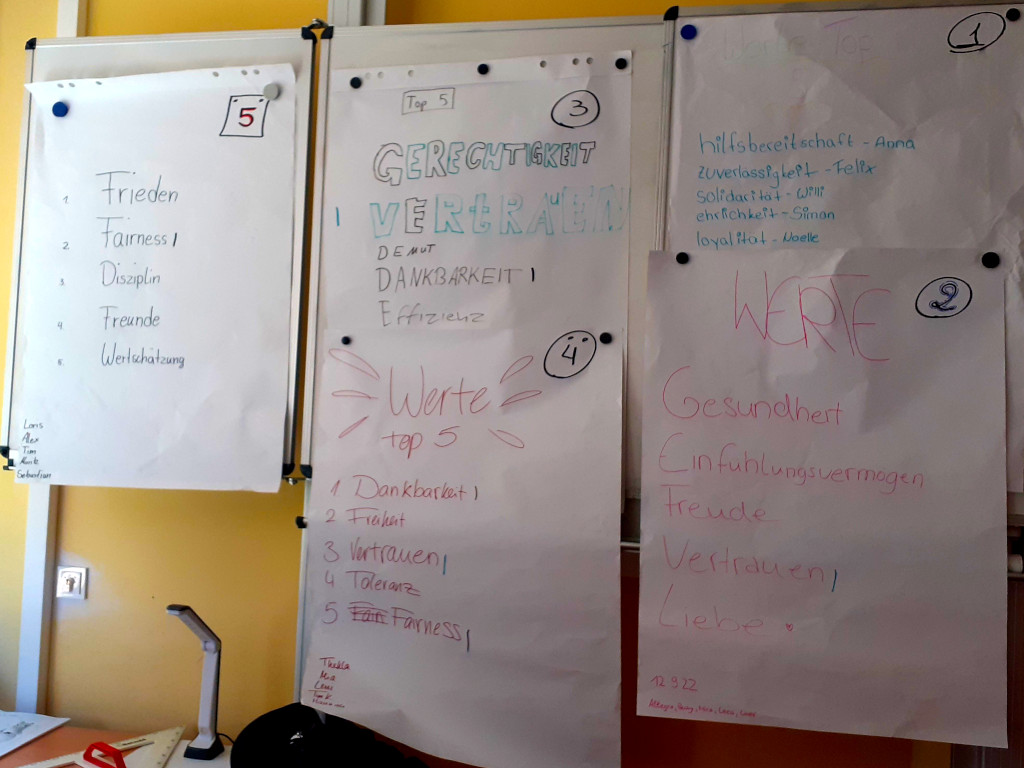 5
1. Frieden
2. Fairness |
3. Disziplin
4. Freunde
5. Wertschätzung
Loris
Alex
Tim
Sebastian
Top 5
3
GERECHTIGKEIT
| VERTRAUEN
DEMUT
DANKBARKEIT |
Effizienz
4
Werte
top 5
1 Dankbarkeit |
2 Freiheit
3 Vertrauen |
4 Toleranz
5 Fair Fairness |
Werte Top
1
hilfsbereitschaft - Anna
zuverlässigkeit - Felix
solidarität - Willi
ehrlichkeit - Simon
loyalität - Noelle
2
WERTE
Gesundheit
Einfühlungsvermögen
Freude
Vertrauen |
Liebe
12.9.22